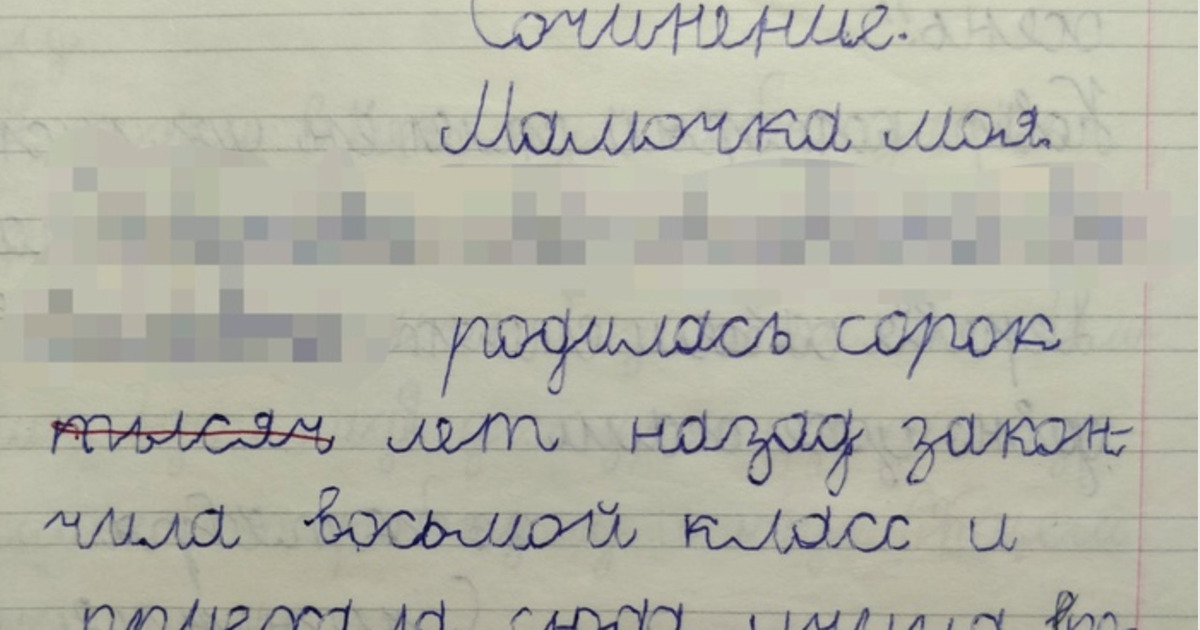 Сочинение.
Мамочка моя.
родилась сорок
тысяч лет назад закон-
чила восьмой класс и
приехала сюда